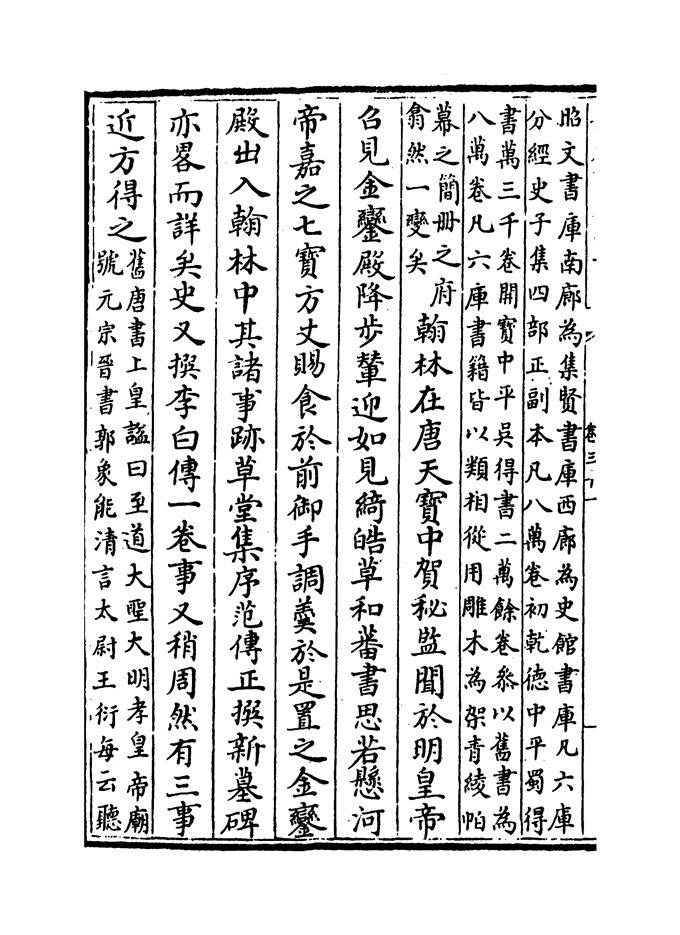 昭文書庫南廊為集賢書庫西廊為史館書庫凡六庫
分經史子集四部正副本凡八萬卷初乾德中平蜀得
書萬三千卷開寳中平吳得書二萬餘卷叅以舊書為
八萬卷凡六庫書籍皆以類相從用雕木為架青綾帕
幕之簡册之府
翕然一變矣
翰林在唐天寶中賀秘監聞於明皇帝
召見金鑾殿降步輦迎如見綺皓草和蕃書思若懸河
帝嘉之七寶方丈賜食於前御手調羮於是置之金鑾
殿出入翰林中其諸事跡草堂集序范傳正撰新墓碑
亦畧而詳矣史又撰李白傳一卷事又稍周然有三事
近方得之
舊唐書上皇諡曰至道大聖大明孝皇帝廟
號元宗晉書郭象能清言太尉王衍每云聽